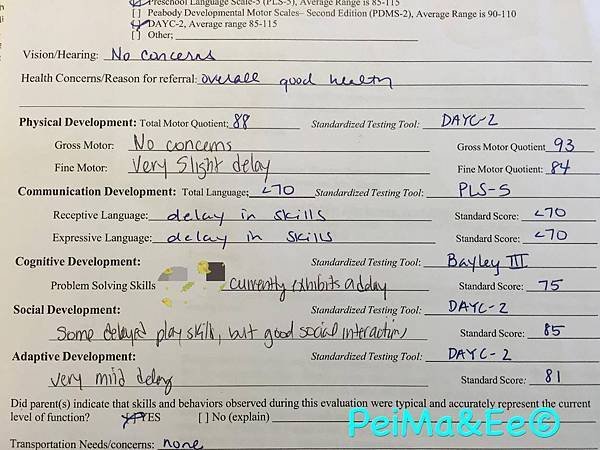 Preschool Language Scale-5 (PLS-5), Average Range is 85-115
[ ] Peabody Developmental Motor Scales– Second Edition (PDMS-2), Average Range is 90-110
DAYC-2, Average range 85-115
[ ] Other;
Vision/Hearing: No concerns
Health Concerns/Reason for referral: overall good health
Physical Development: Total Motor Quotient: 88 Standardized Testing Tool: DAYC-2
Gross Motor: No concerns Gross Motor Quotient 93
Fine Motor: Very slight delay Fine Motor Quotient: 84
Communication Development: Total Language: <70 Standardized Testing Tool: PLS-5
Receptive Language: delay in skills Standard Score: <70
Expressive Language: delay in skills Standard Score: <70
Cognitive Development: Standardized Testing Tool: Bayley III
Problem Solving Skills currently exhibits a delay Standard Score: 75
Social Development: Standardized Testing Tool: DAYC-2
Some delayed play skills, but good social interactions Standard Score: 85
Adaptive Development: Standardized Testing Tool: DAYC-2
very mild delay Standard Score: 81
Did parent(s) indicate that skills and behaviors observed during this evaluation were typical and accurately represent the current
level of function? YES [ ] No (explain)
PeiMa&Ee©
Transportation Needs/concerns: none